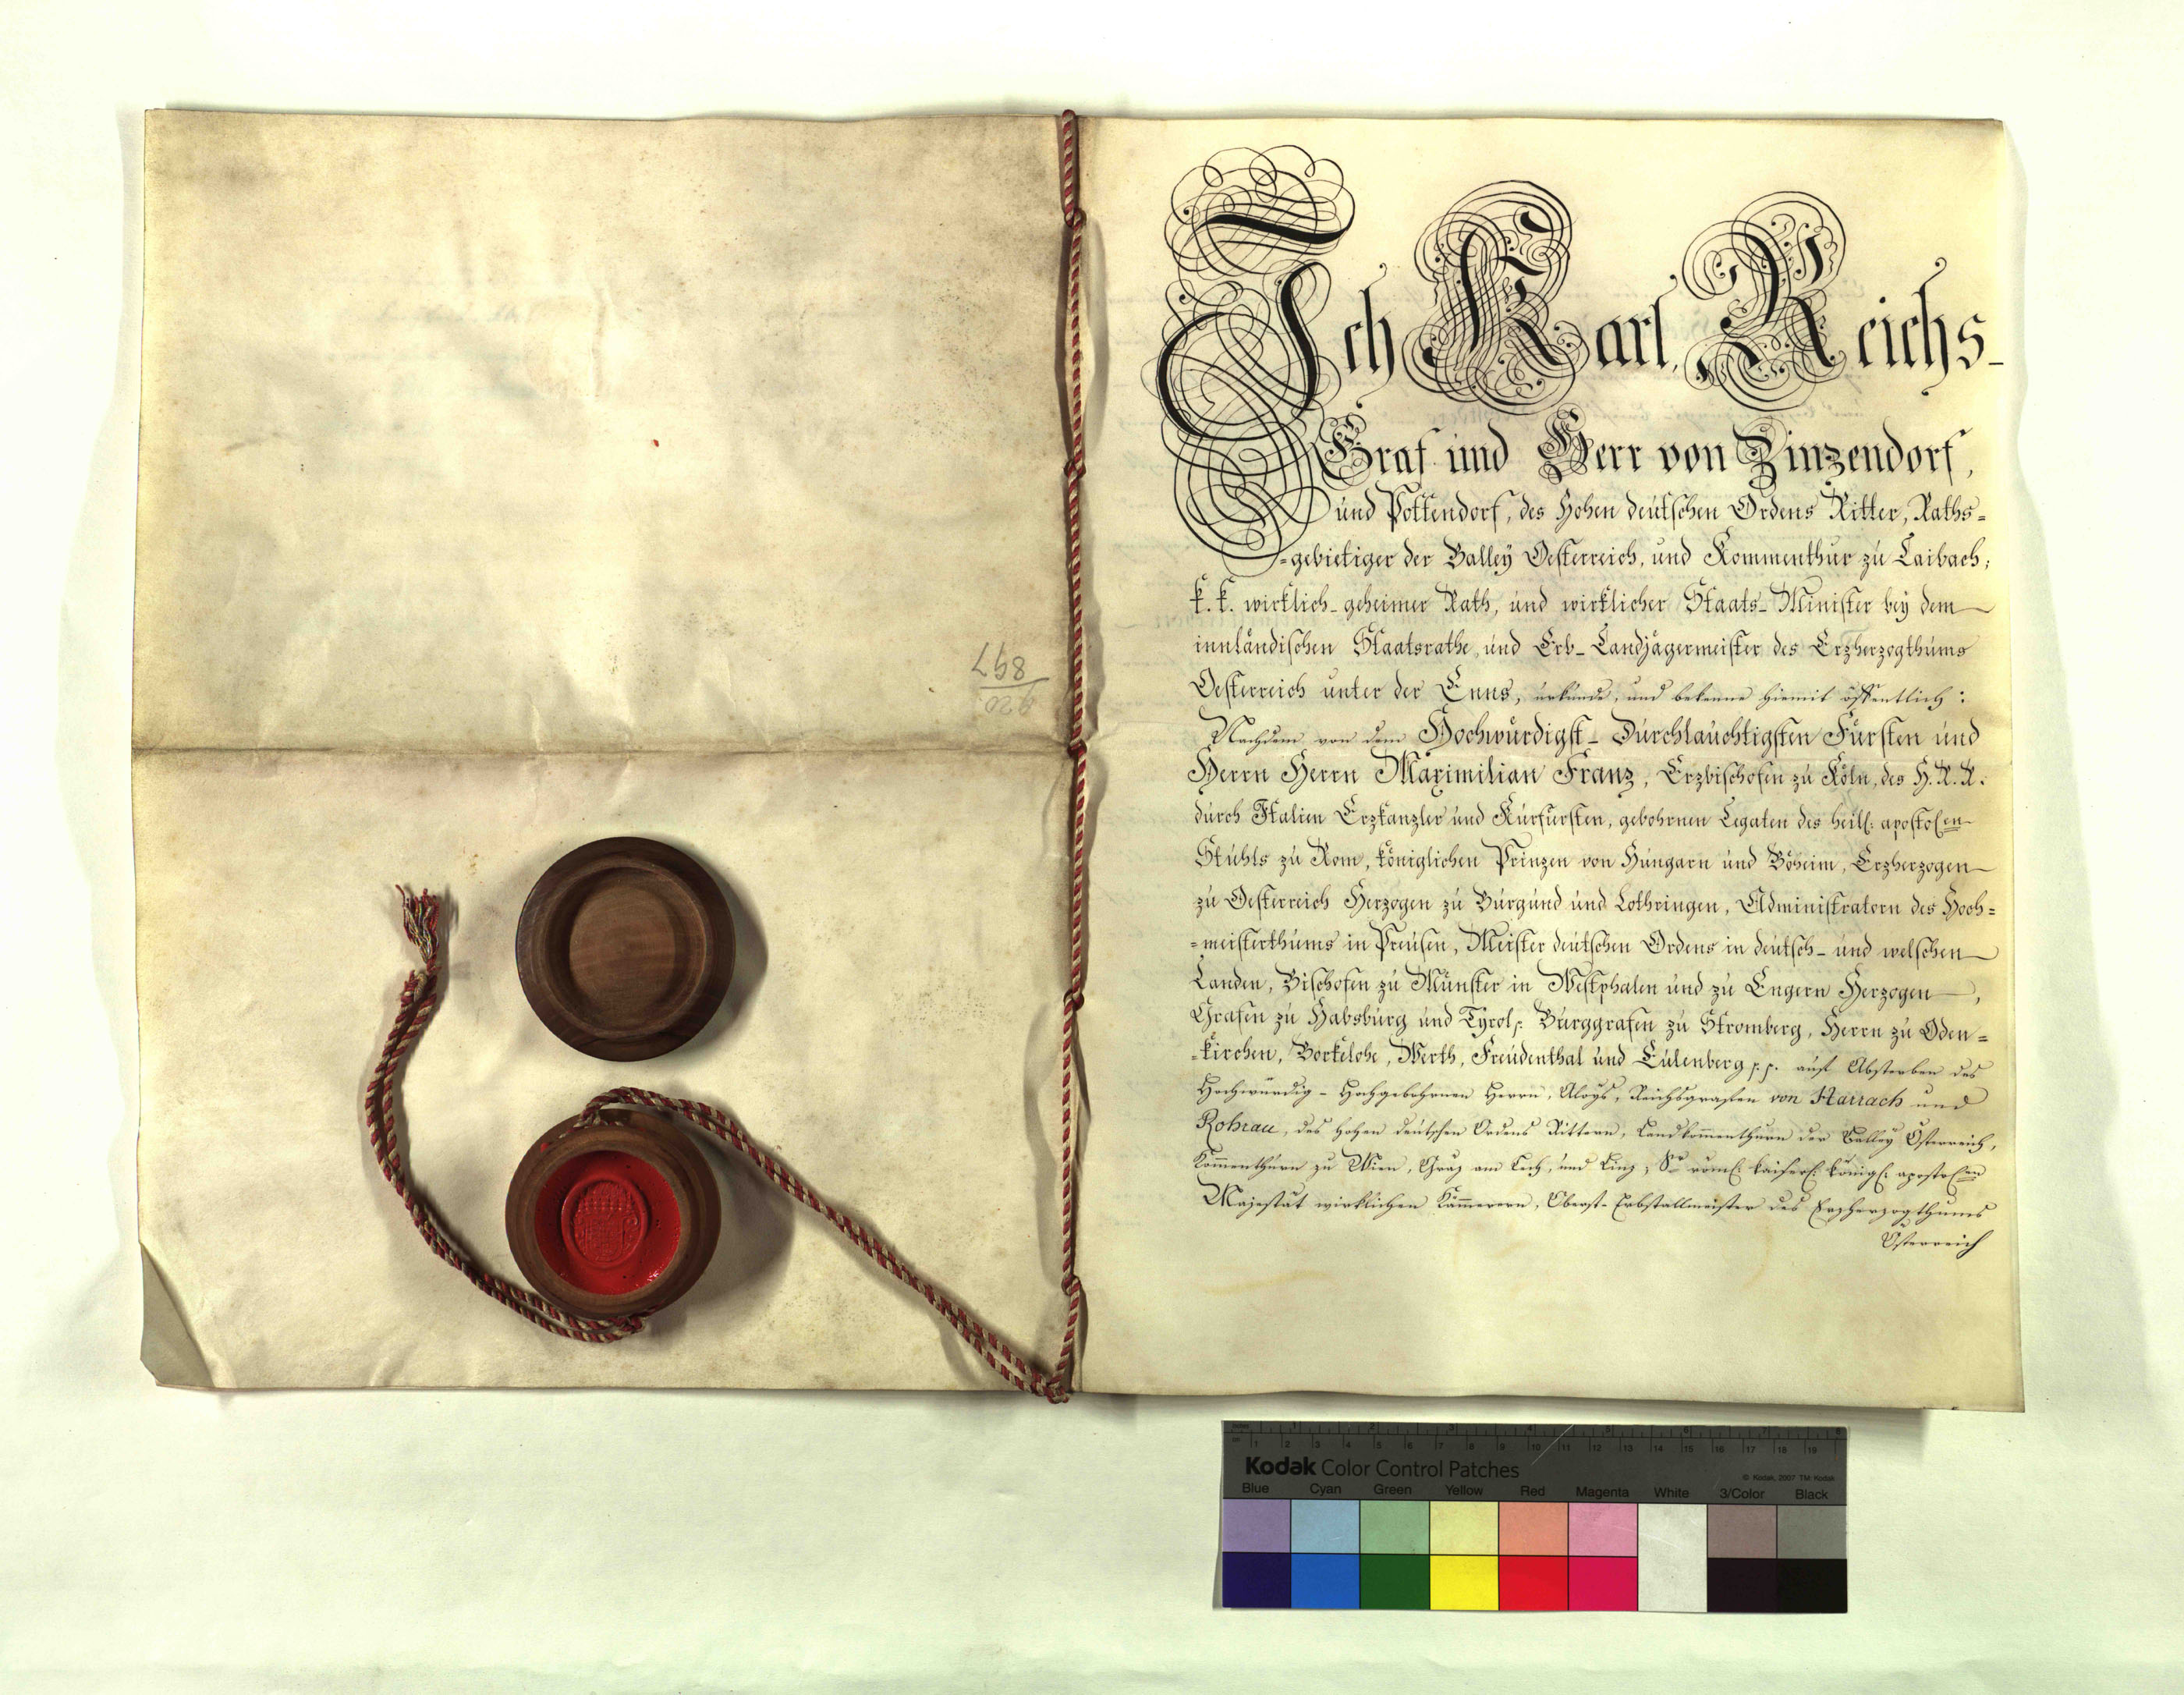 897
920
Ich Karl, Reichs-
Graf und Herr von Zinzendorf,
und Pottendorf, des Hohen deutschen Ordens Ritter, Raths=
=gebietiger der Balley Oesterreich, und Kommenthur zu Laibach;
k. k. wirklich-geheimer Rath, und wirklicher Staats-Minister bey dem
innländischen Staatsrathe, und Erb-Landjägermeister des Erzherzogthums
Oesterreich unter der Enns, urkunde, und bekenne hiemit öffentlich:
Nachdem von dem Hochwürdigst-Durchlauchtigsten Fürsten und
Herrn Herrn Maximilian Franz, Erzbischofen zu Köln, des H. R. R.
durch Italien Erzkanzler und Kurfürsten, gebohrnen Legaten des heil: apostolen
Stuhls zu Rom, königlichen Prinzen von Hungarn und Böheim, Erzherzogen
zu Oesterreich Herzogen zu Burgund und Lothringen, Administratorn des Hoch=
=meisterthums in Preusen, Meister deutschen Ordens in deutsch- und welschen
Landen, Bischofen zu Münster in Westphalen und zu Engern Herzogen,
Grafen zu Habsburg und Tyrol p: Burggrafen zu Stromberg, Herrn zu Oden=
=kirchen, Borkelohe, Werth, Freudenthal und Eulenberg p. p. auf Absterben des
Hochwürdig-Hochgebohrnen Herrn, Aloys, Reichsgrafen von Harrach und
Rohrau, des hohen deutschen Ordens Rittern, Landkommenthurn der Balley Österreich,
Kommenthurn zu Wien, Gräz am Lech, und Linz, Sr röml: kaiserl: königl: apostolen
Majestät wirklichen Kämmerern, Oberst-Erbstallmeister des Erzherzogthums
Österreich
Kodak Color Control Patches
© Kodak, 2007 TM: Kodak
Blue Cyan Green Yellow Red Magenta White 3/Color Black